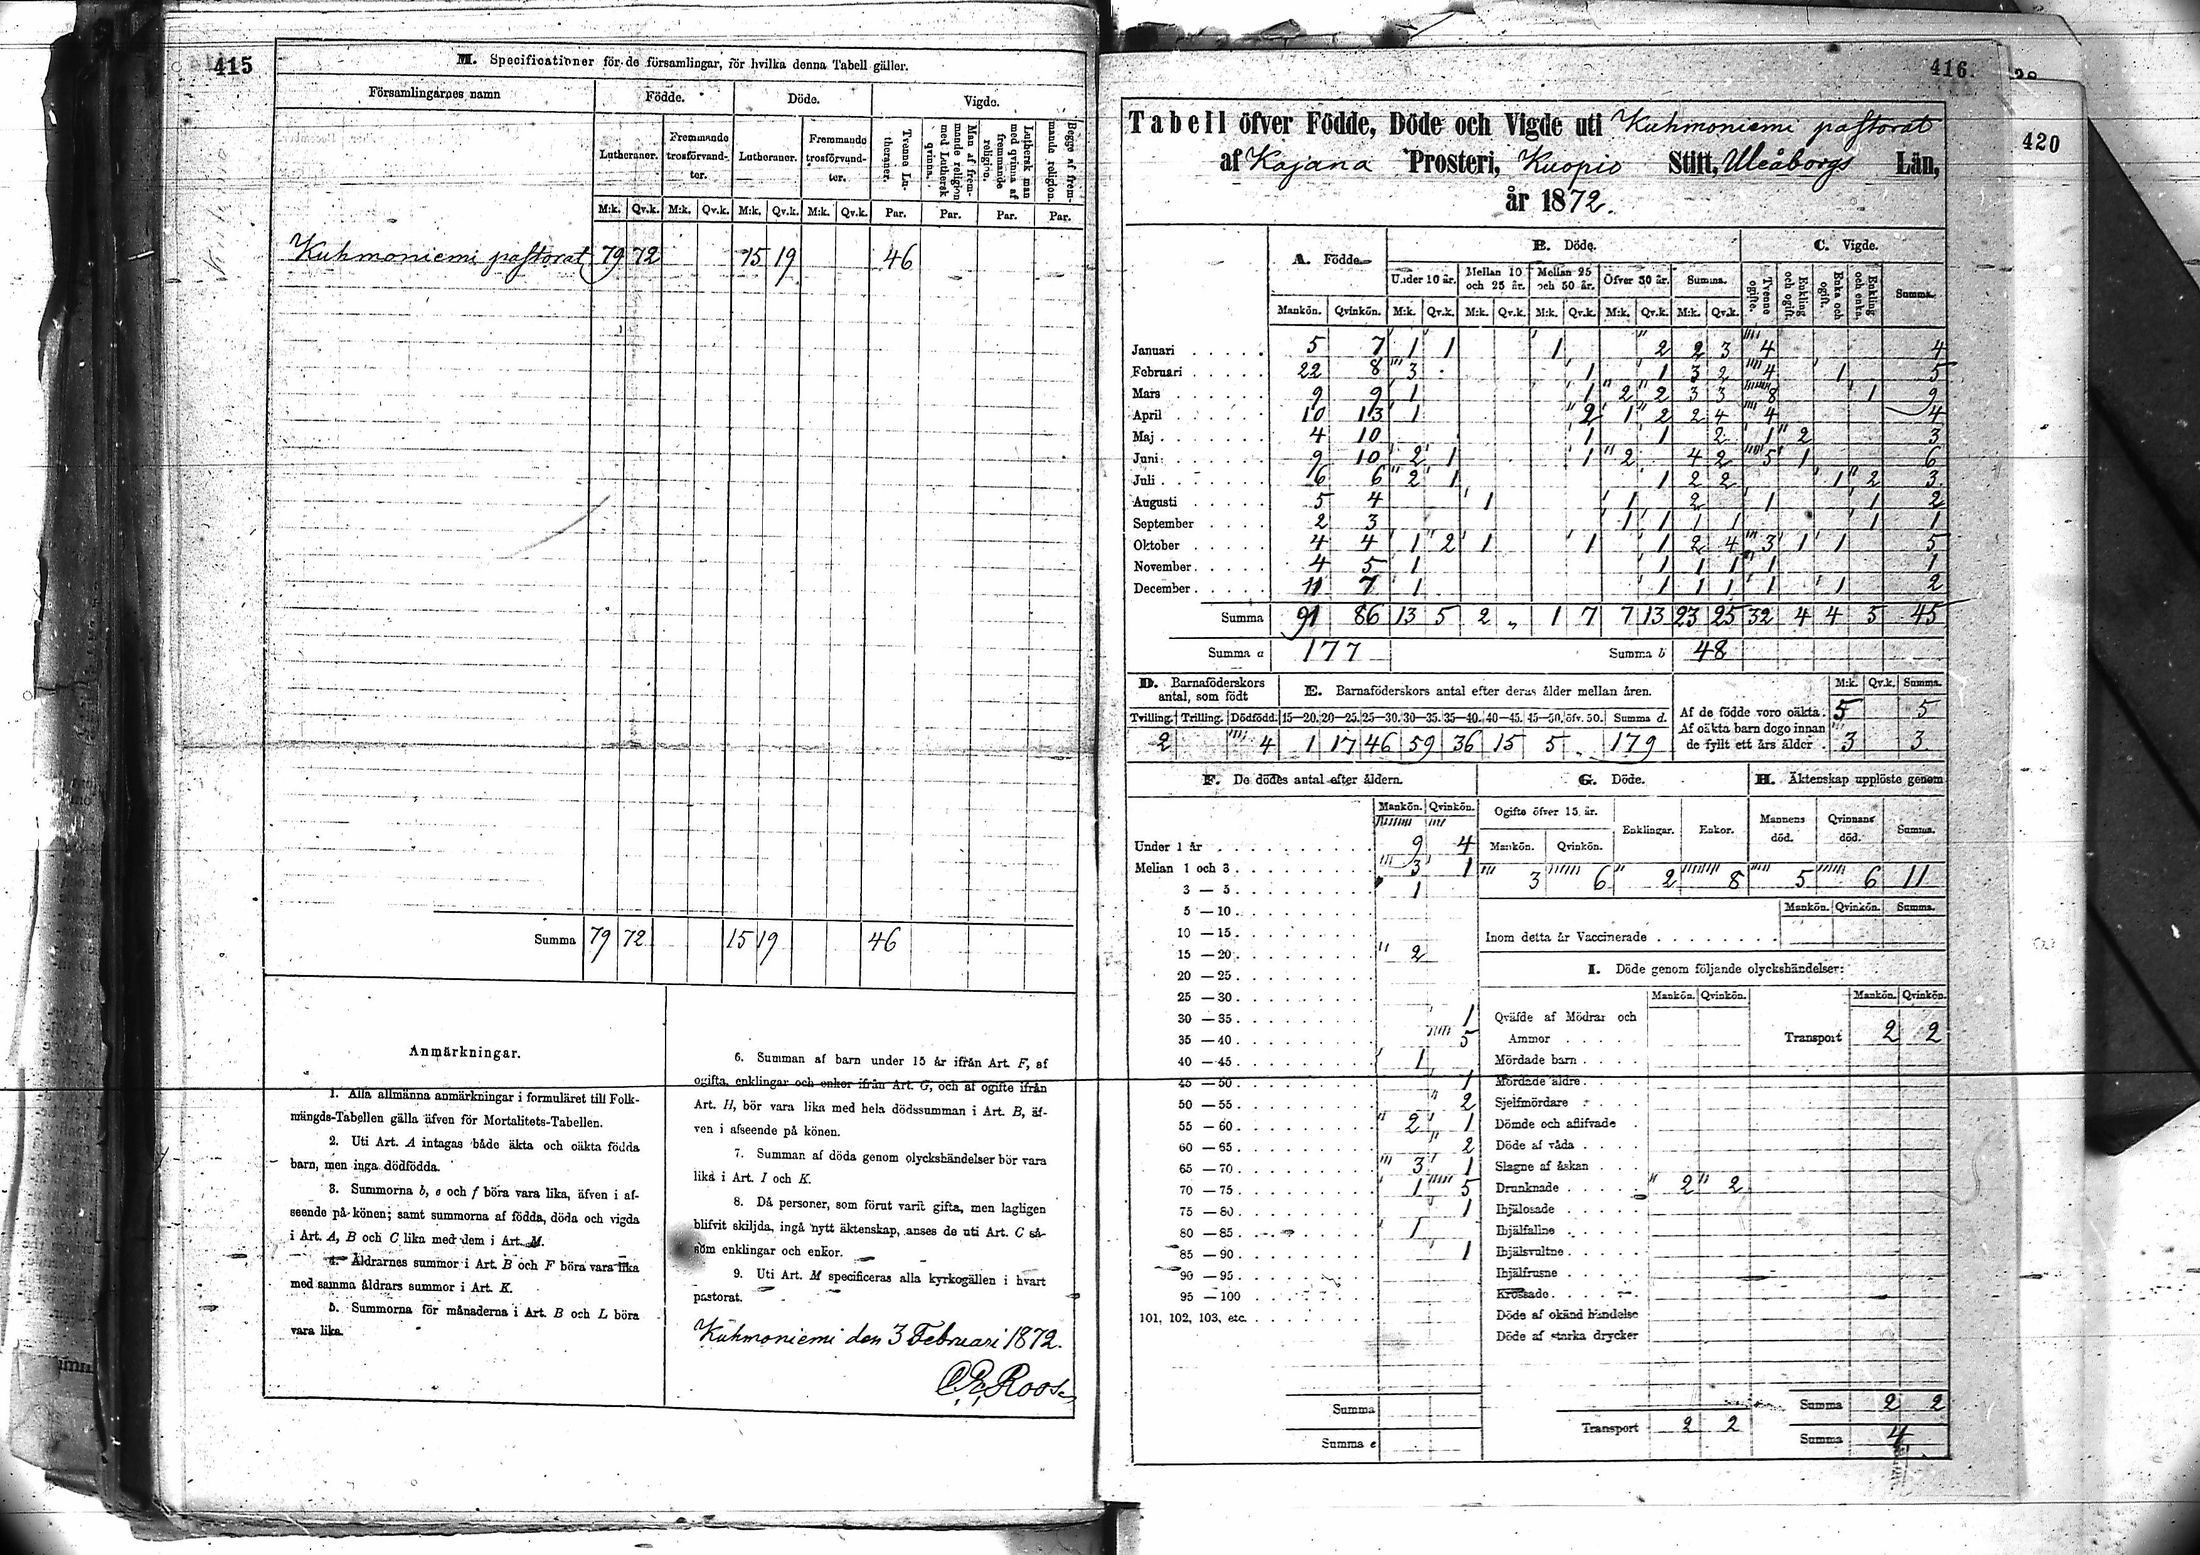 415
M. Specificationer för de församlingar, för hvilka denna Tabell gäller.
Församlingarnes namn Födde. Döde. Vigde.
Lutheraner. Fremmande trosförvand-ter. Lutheraner. Fremmande trosförvand-ter. Tvenne Lu-theraner. Man af frem-mande religion med Luthersk qvinna. Luthersk man med qvinna af fremmande religion. Begge af frem-mande religion.
M:k. Qv.k. M:k. Qv.k. M:k. Qv.k. M:k. Qv.k. Par. Par. Par. Par.
Kuhmoniemi pastorat 79 72 15 19 46
Summa 79 72 15 19 46
Anmärkningar.
1. Alla allmänna anmärkningar i formuläret till Folk-
mängds-Tabellen gälla äfven för Mortalitets-Tabellen.
2. Uti Art. A intagas både äkta och oäkta födda
barn, men inga dödfödda.
3. Summorna b, e och f böra vara lika, äfven i af-
seende på könen; samt summorna af födda, döda och vigda
i Art. A, B och C lika med dem i Art. M.
4. Åldrarnes summor i Art. B och F böra vara lika
med samma åldrars summor i Art. K.
5. Summorna för månaderna i Art. B och L böra
vara lika.
6. Summan af barn under 15 år ifrån Art. F, af
ogifta, enklingar och enkor ifrån Art. G, och af ogifte ifrån
Art. H, bör vara lika med hela dödssumman i Art. B, äf-
ven i afseende på könen.
7. Summan af döda genom olyckshändelser bör vara
lika i Art. I och K.
8. Då personer, som förut varit gifta, men lagligen
blifvit skiljda, ingå nytt äktenskap, anses de uti Art. C så-
som enklingar och enkor.
9. Uti Art. M specificeras alla kyrkogällen i hvart
pastorat.
Kuhmoniemi den 3 Februari 1872.
Roos
416.
420
Tabell öfver Födde, Döde och Vigde uti Kuhmoniemi pastorat
af Kajana Prosteri, Kuopio Stift, Uleåborgs Län,
år 1872.
A. Födde B. Döde. C. Vigde.
Under 10 år. Mellan 10 och 25 år. Mellan 25 och 50 år. Öfver 50 år. Summa. Tvenne ogifte. Enkling och ogift. Enka och ogift. Enkling och enka. Summa.
Mankön. Qvinkön. M:k. Qv.k. M:k. Qv.k. M:k. Qv.k. M:k. Qv.k. M:k. Qv.k.
Januari 5 7 1 1 1 2 2 3 4 4
Februari 22 8 3 1 1 3 2 4 1 5
Mars 9 9 1 1 2 2 3 3 8 1 9
April 10 13 1 2 1 2 2 4 4 4
Maj 4 10 1 1 2 1 2 3
Juni 9 10 2 1 1 2 4 2 5 1 6
Juli 6 6 2 1 1 2 2 1 2 3
Augusti 5 4 1 1 2 1 1 2
September 2 3 1 1 1 1 1 1
Oktober 4 4 1 2 1 1 1 2 4 3 1 1 5
November 4 5 1 1 1 1 1 1
December 11 7 1 1 1 1 1 1 2
Summa 91 86 13 5 2 „ 1 7 7 13 23 25 32 4 4 5 45
Summa a 177 Summa b 48
D. Barnaföderskors antal, som födt
E. Barnaföderskors antal efter deras ålder mellan åren.
M:k. Qv.k. Summa.
Tvilling. Trilling. Dödfödd. 15—20. 20—25. 25—30. 30—35. 35—40. 40—45. 45—50. öfv. 50. Summa d.
2 4 1 17 46 59 36 15 5 179
Af de födde voro oäkta 5 5
Af oäkta barn dogo innan de fyllt ett års ålder 3 3
F. De dödes antal efter åldern.
Mankön. Qvinkön.
Under 1 år 9 4
Mellan 1 och 3 3 1
3 — 5 1
5 — 10
10 — 15
15 — 20 2
20 — 25
25 — 30
30 — 35 1
35 — 40 5
40 — 45 1
45 — 50 1
50 — 55 2
55 — 60 2 1
60 — 65 2
65 — 70 3 1
70 — 75 1 5
75 — 80 1
80 — 85 1
85 — 90 1
90 — 95
95 — 100
101, 102, 103, etc.
Summa
Summa e
G. Döde.
Ogifte öfver 15 år. Enklingar. Enkor.
Mankön. Qvinkön.
3 6 2 8
H. Äktenskap upplöste genom
Mannens död. Qvinnans död. Summa.
5 6 11
Mankön. Qvinkön. Summa.
Inom detta år Vaccinerade
I. Döde genom följande olyckshändelser:
Mankön. Qvinkön. Mankön. Qvinkön.
Qväfde af Mödrar och Ammor
Transport 2 2
Mördade barn
Mördade äldre
Sjelfmördare
Dömde och aflifvade
Döde af våda
Slagne af åskan
Drunknade 2 2
Ihjälosade
Ihjälfallne
Ihjälsvultne
Ihjälfrusne
Krossade
Döde af okänd händelse
Döde af starka drycker
Transport 2 2
Summa 2 2
Summa 4